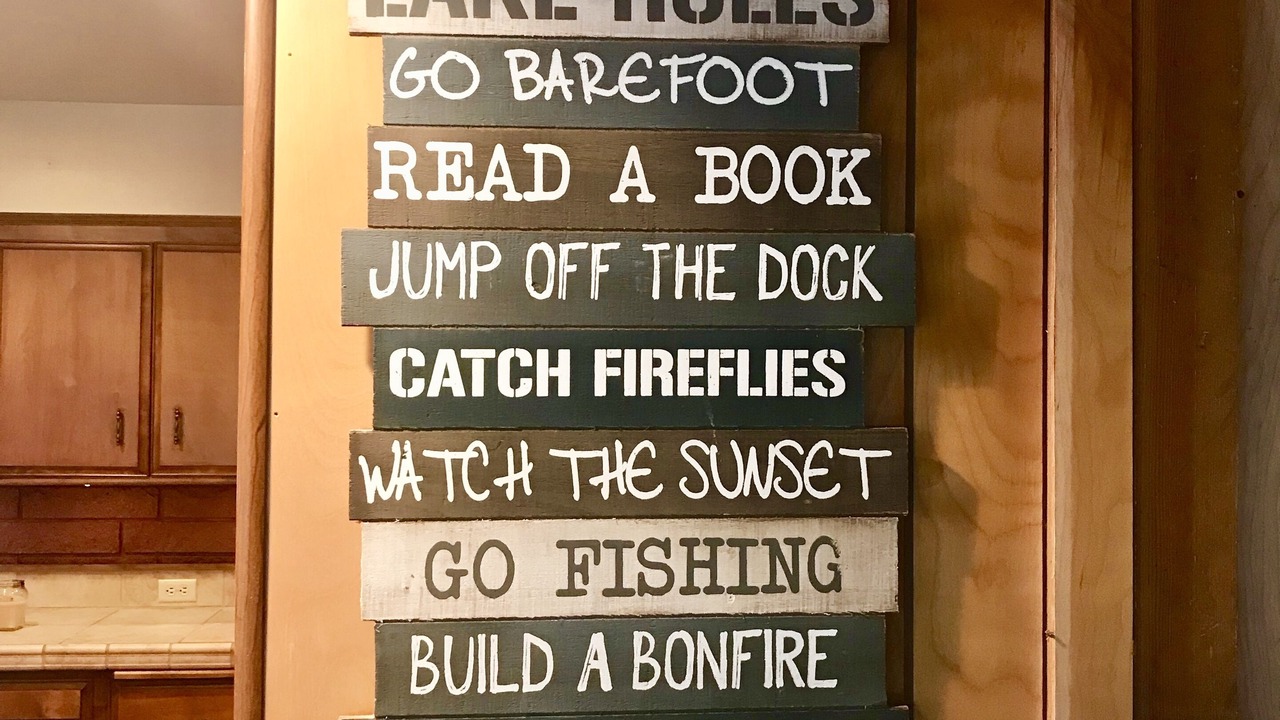 LAKE RULES
GO BAREFOOT
READ A BOOK
JUMP OFF THE DOCK
CATCH FIREFLIES
WATCH THE SUNSET
GO FISHING
BUILD A BONFIRE